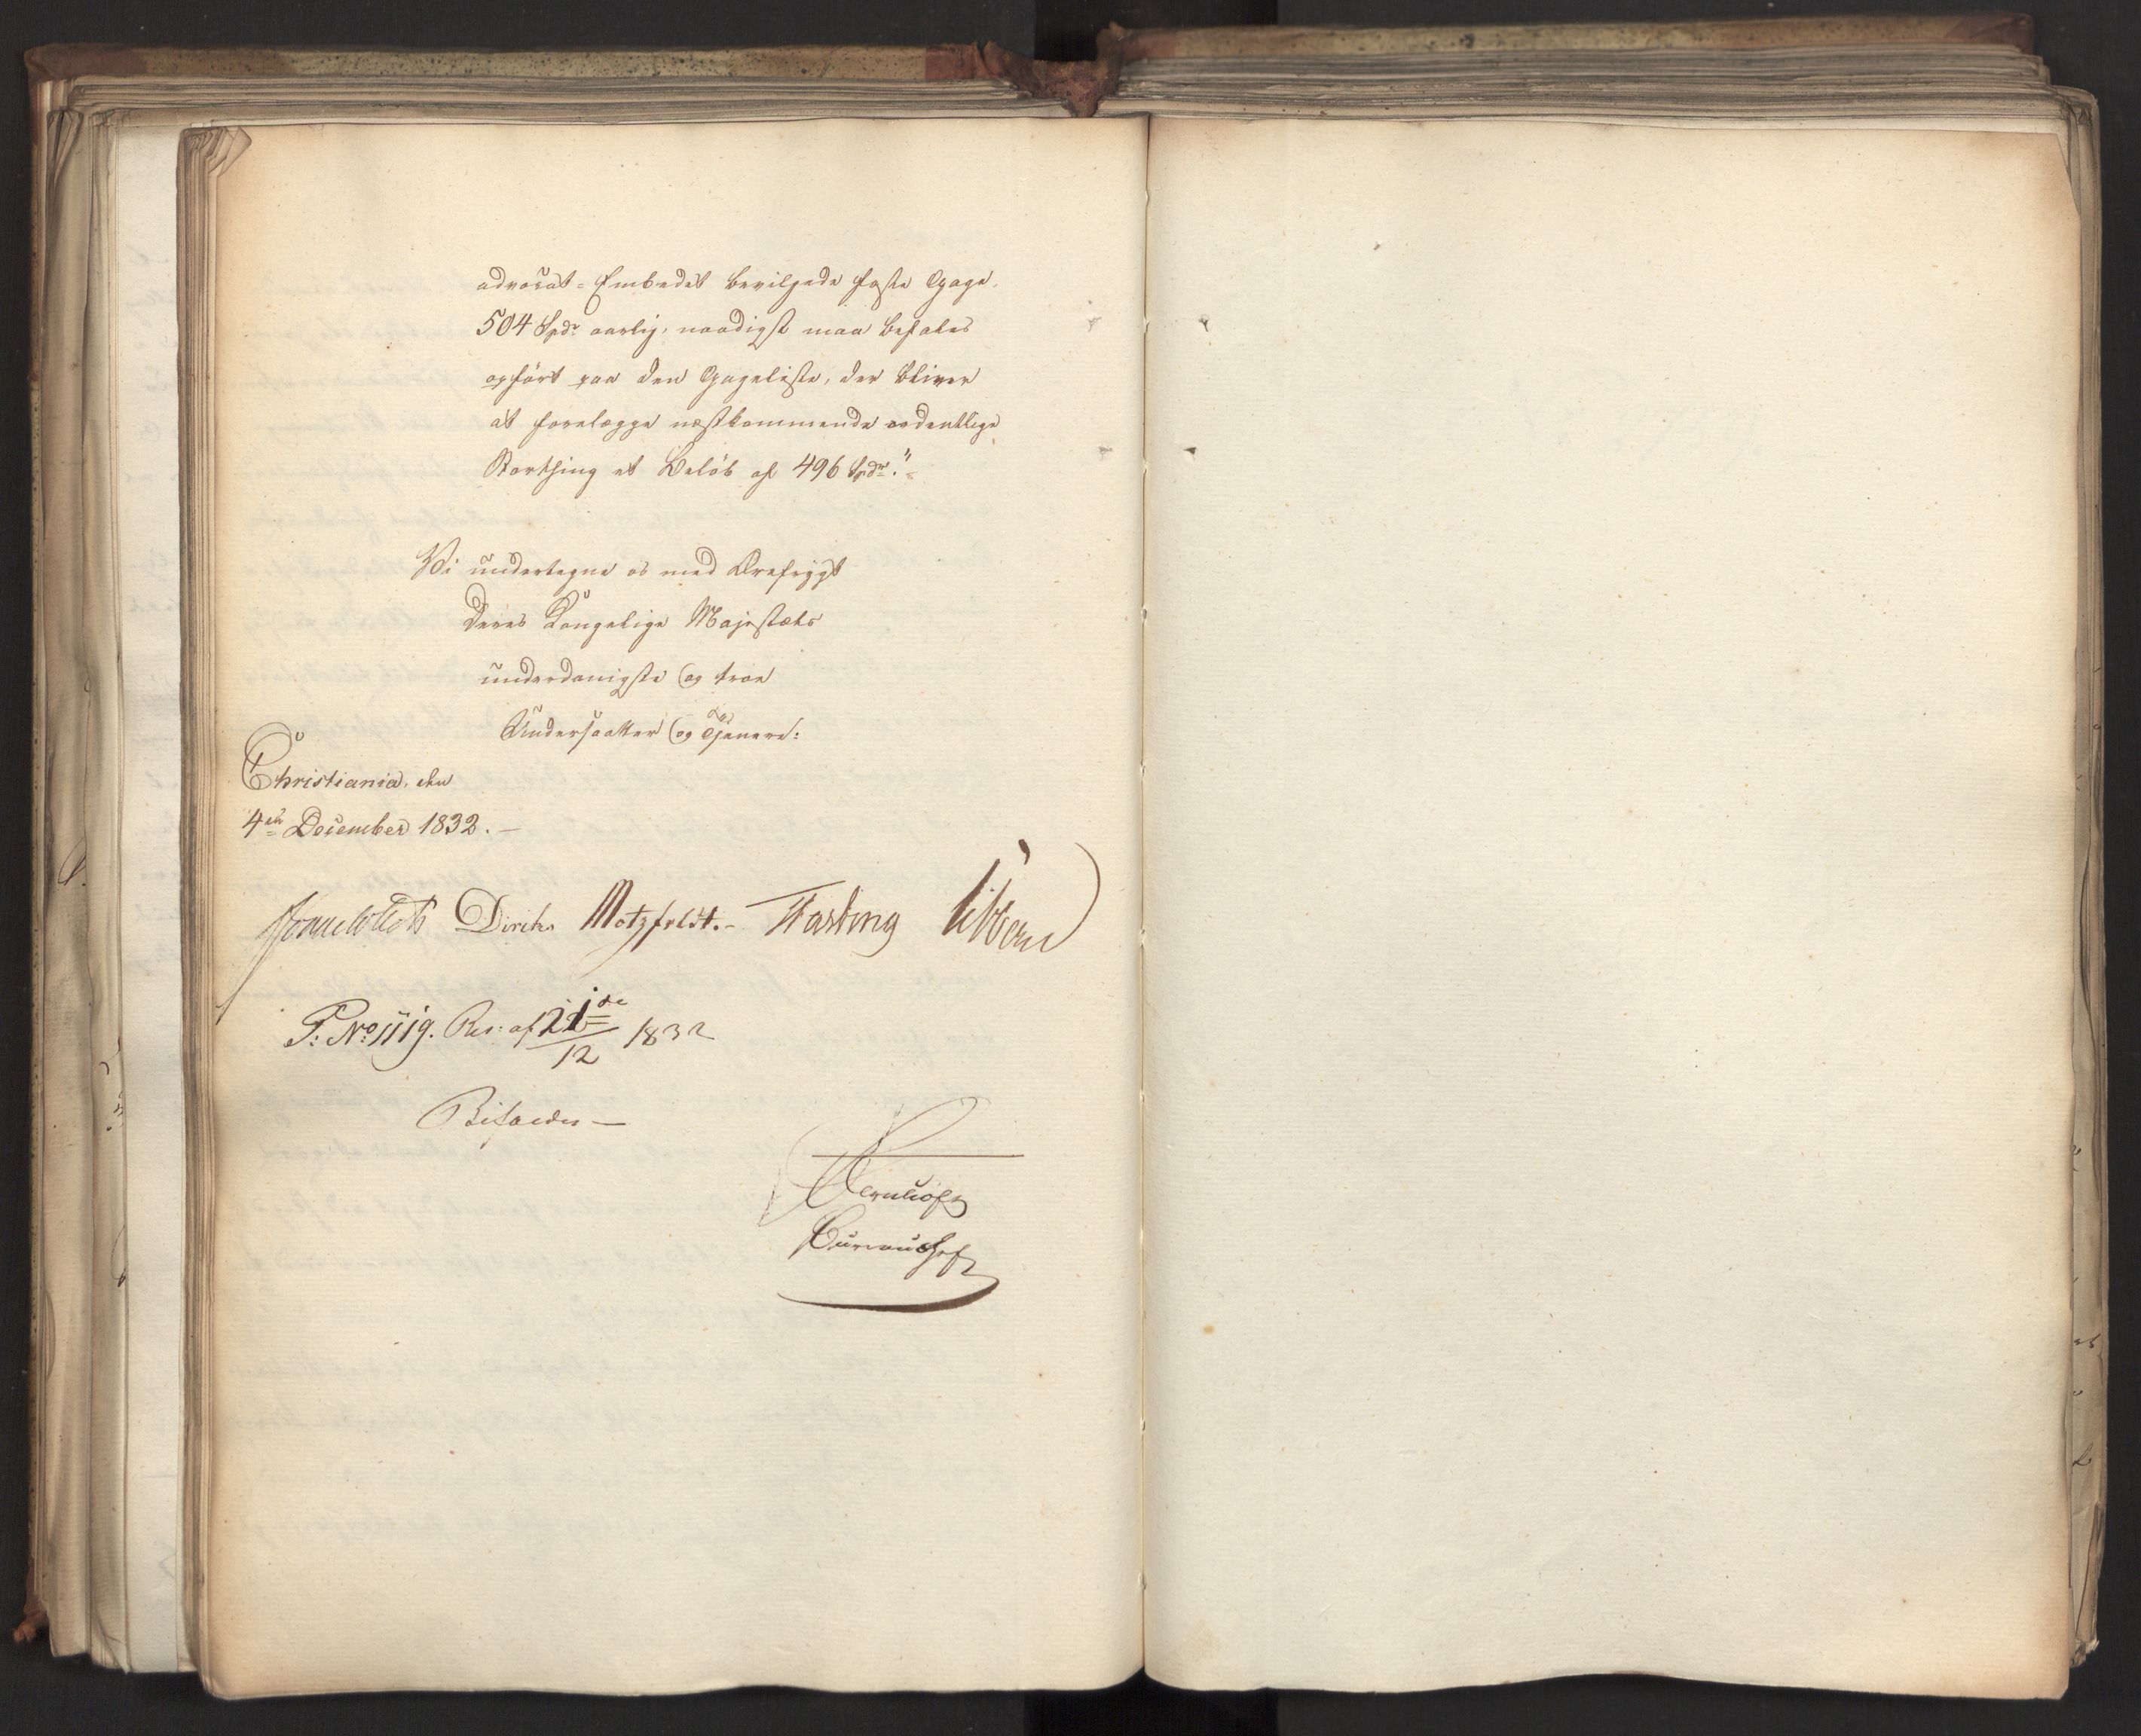 advocat-Embedet bevilgede faste Gage,
504 Spdr aarlig, naadigst maa befales
opført paa den Gageliste, der bliver
at forelægge næstkommende ordentlige
Storthing et Beløb af 496 Spdr."
Vi undertegne os med Ærefrygt
Deres Kongelige Majestæts
underdanigste og troe
Undersaatter og Tjenere:
Christiania, den
4de December 1832.-
Diriks Motzfeldt.- Fasting Vibe
P: No Res: af 21de/12 1832
Bifaldes -
Bureauchef